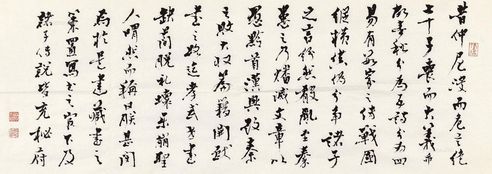 昔仲尼沒而微言絕
七十子喪而大義乖
故春秋分為五詩分為四
易有數家之傳戰國
縱橫真偽分爭諸子
之言紛然殽亂至秦
患之乃燔滅文章以
愚黔首漢興改秦
之敗大收篇籍開獻
書之路迄孝武世書
缺簡脫禮壞樂崩聖
人喟然而稱曰朕甚閔
焉於是建藏書之
策置寫書之官下及
諸子傳說皆充秘府